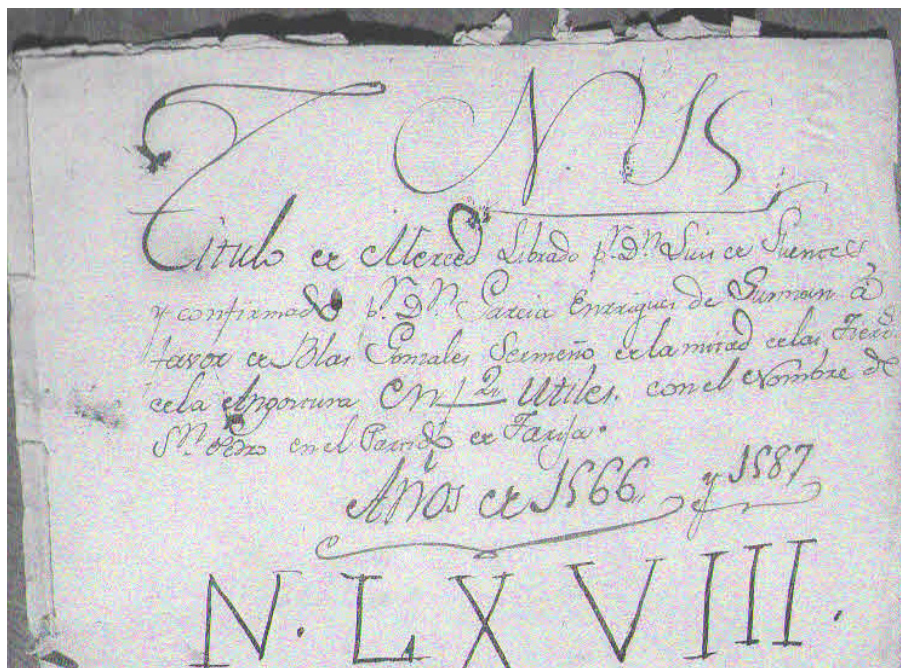 T N.
Titulo de Merced Librado pr. Dn. Luis de Fuentes,
y confirmado pr. Dn. Garcia Enrriques de Gusman a
favor de Blas Gonzales Sermeño de la mitad de las Tierrs.
de la Angostura en f 2s Utiles. con el Nombre de
Sn. Pedro en el Partido de Tarija.
Años de 1566, y 1587
N. LXVIII.